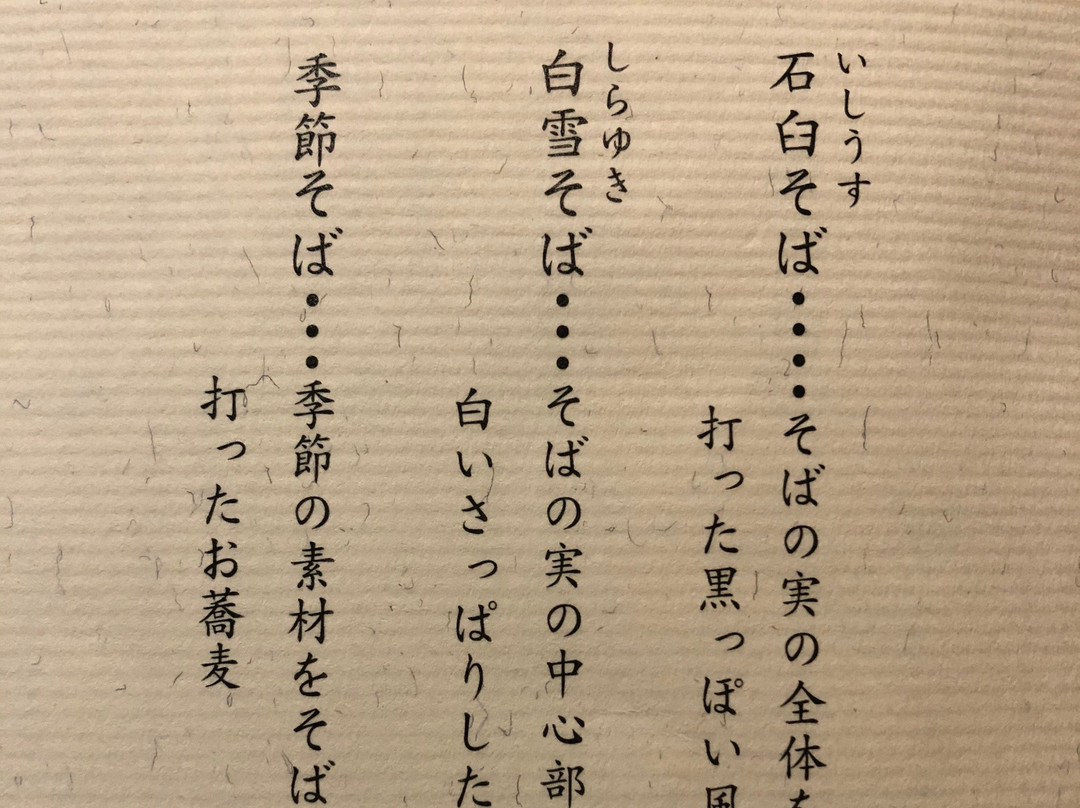 いしうす
石臼そば・・・・そばの実の全体を
打った黒っぽい風
しらゆき
白雪そば・・・そばの実の中心部
白いさっぱりした
季節そば・・・季節の素材をそば
打ったお蕎麦